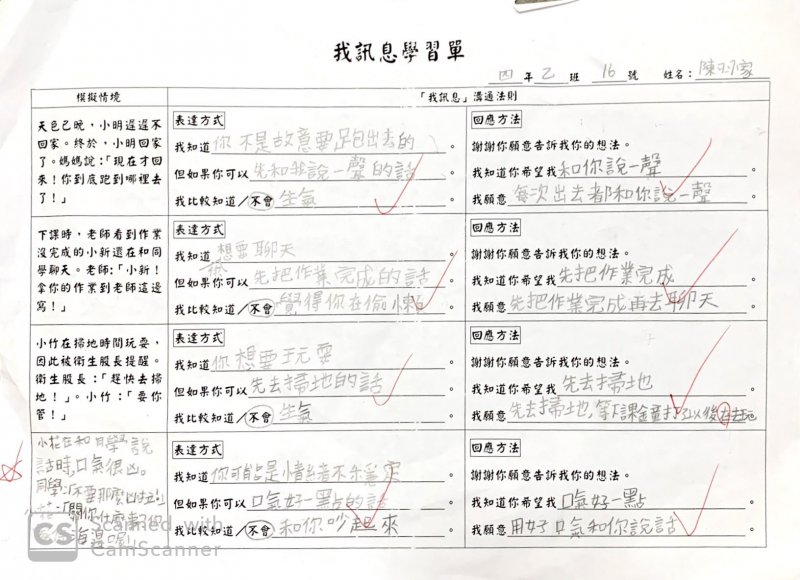 我訊息學習單
四年乙班16號 姓名：陳
模擬情境
「我訊息」溝通法則
天色已晚，小明遲遲不
回家。終於，小明回家
了。媽媽說：「現在才回
來！你到底跑到哪裡去
了！」
表達方式
我知道你不是故意要跑出去的。
但如果你可以先和我說一聲的話
我比較知道／不會生氣。
回應方法
謝謝你願意告訴我你的想法。
我知道你希望我和你說一聲。
我願意每次出去都和你說一聲。
下課時，老師看到作業
沒完成的小新還在和同
學聊天。老師：「小新！
拿你的作業到老師這邊
寫！」
表達方式
我知道想要聊天。
但如果你可以先把作業完成的話
我比較知道／不會覺得你在偷懶。
回應方法
謝謝你願意告訴我你的想法。
我知道你希望我先把作業完成。
我願意先把作業完成再去聊天。
小竹在掃地時間玩耍，
因此被衛生股長提醒。
衛生股長：「趕快去掃
地！」。小竹：「要你
管！」
表達方式
我知道你想要玩耍。
但如果你可以先去掃地的話
我比較知道／不會生氣。
回應方法
謝謝你願意告訴我你的想法。
我知道你希望我先去掃地。
我願意先去掃地，等下課鐘打了以後再去玩
小花在和同學說
話時，口氣很凶。
同學：「不要那麼凶
花：「關你什麼
表達方式
我知道你可能是情緒不穩定。
但如果你可以口氣好一點的話
我比較知道／不會和你吵起來。
回應方法
謝謝你願意告訴我你的想法。
我知道你希望我口氣好一點。
我願意用好口氣和你說話。
CS Scanned with
CamScanner